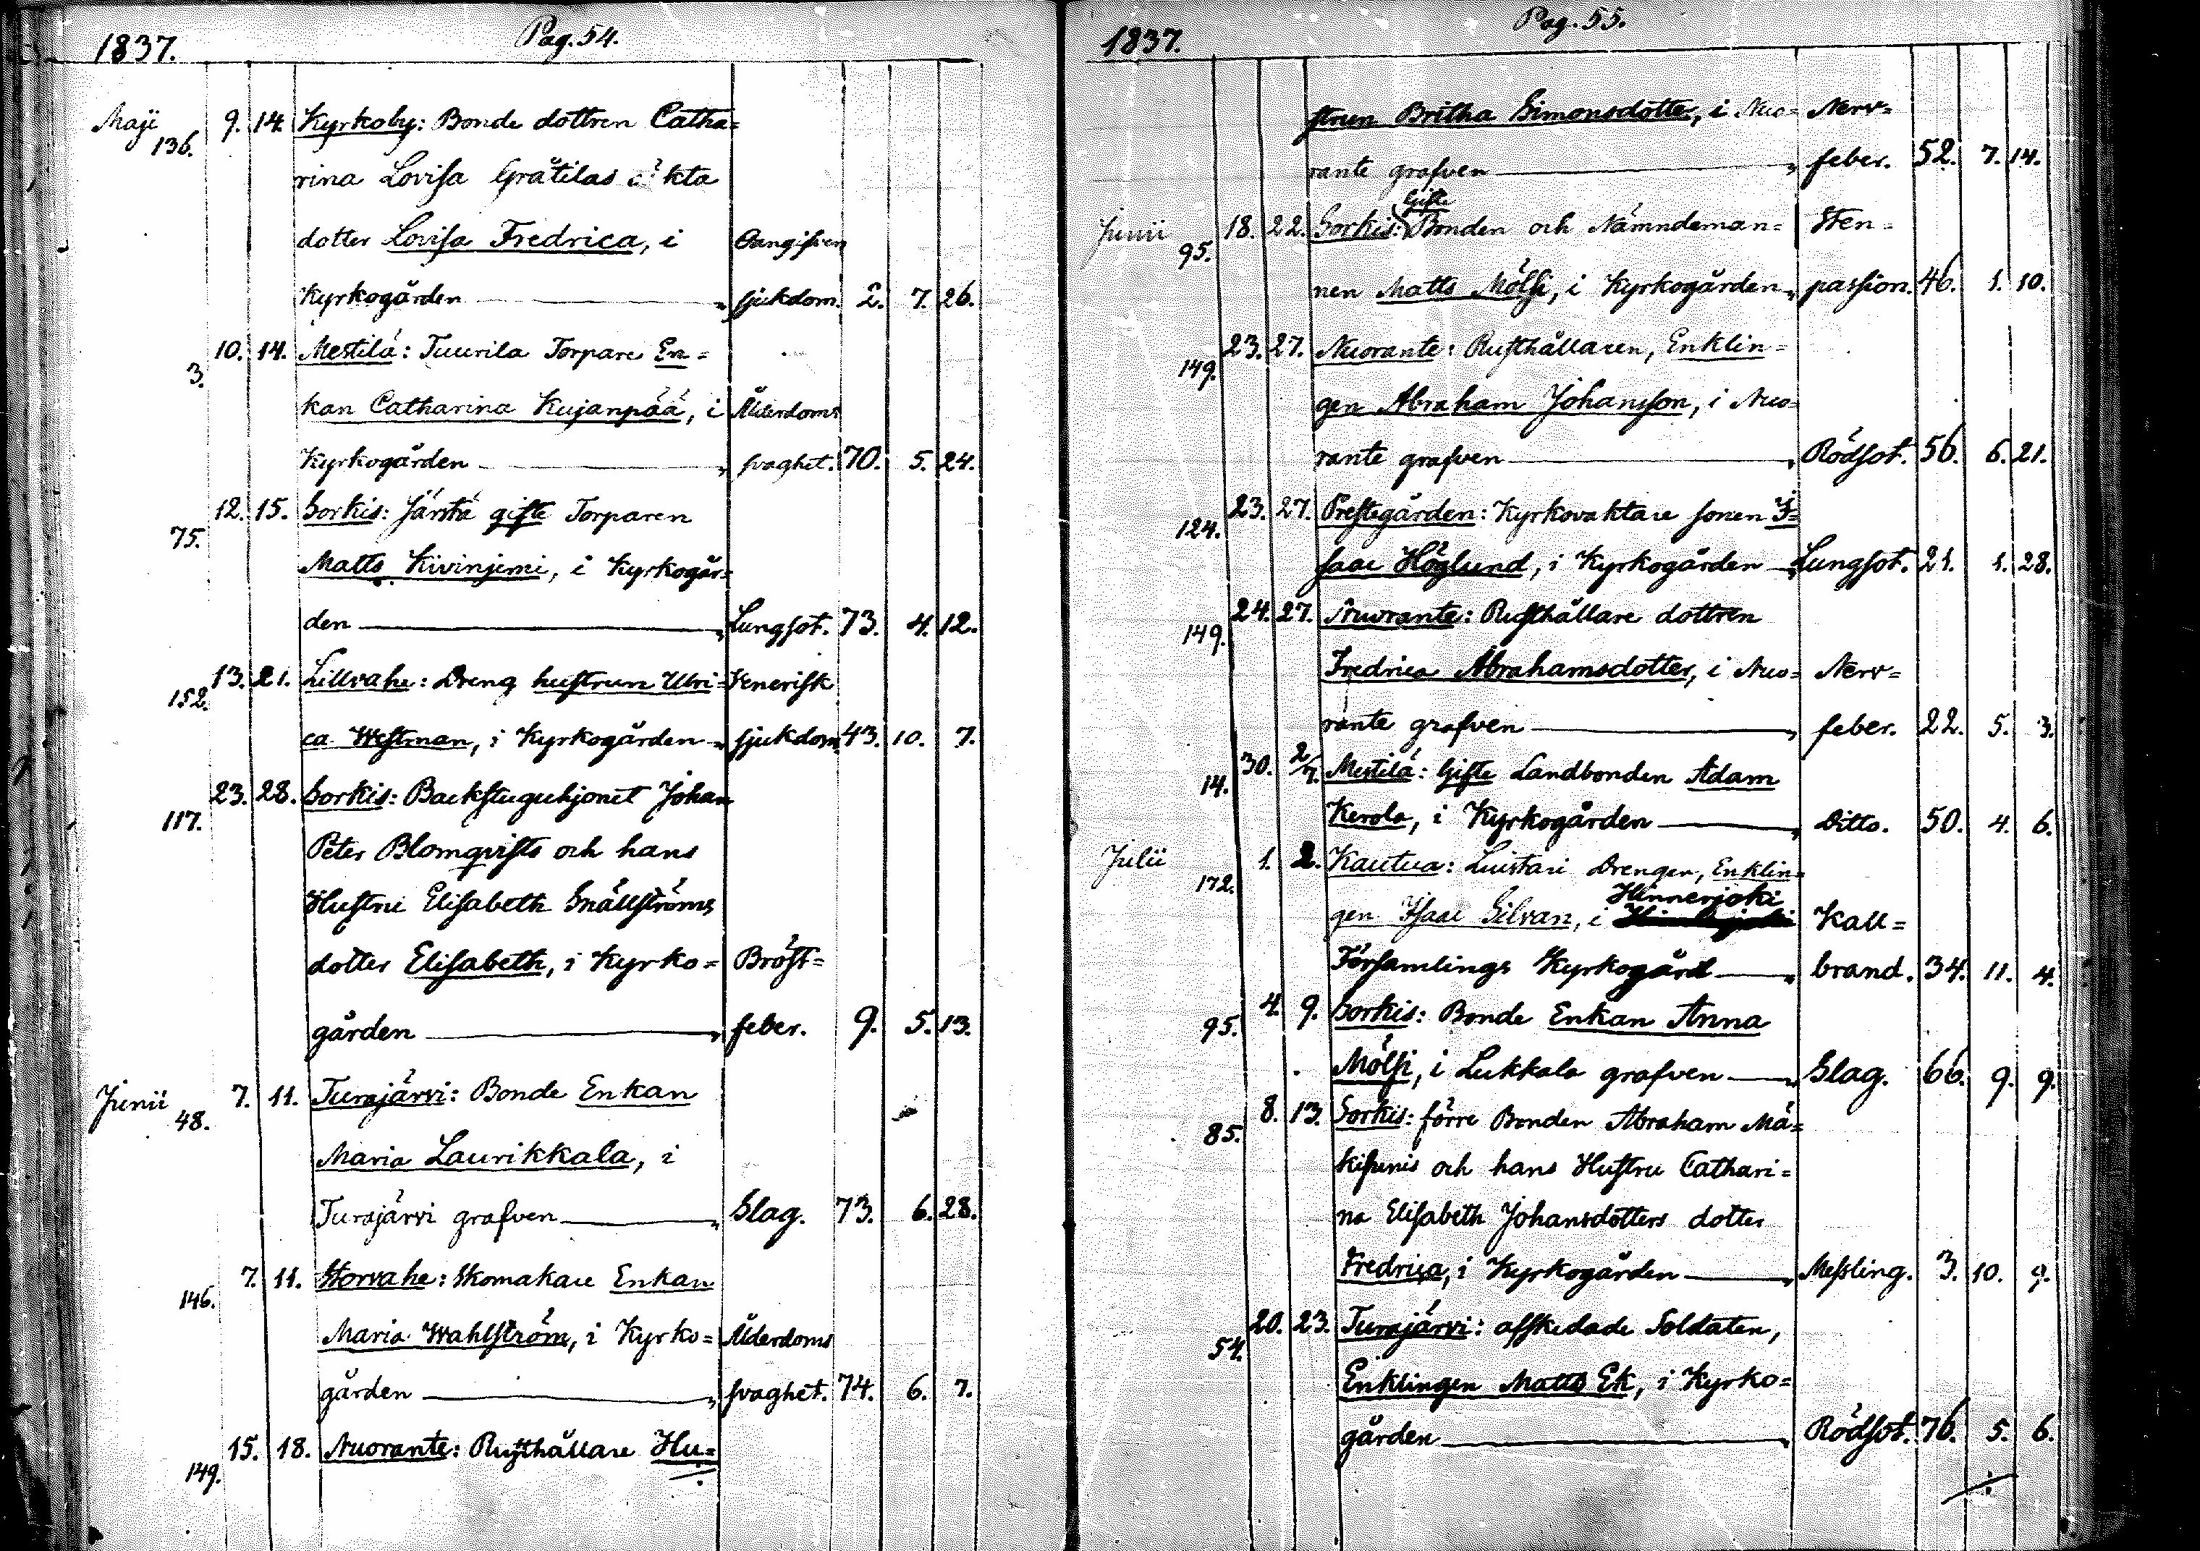 1837. Pag. 54.
Maji 136. 9. 14. Kyrkoby: Bonde dottren Catha=
rina Lovisa Gråtilas äkta
dotter Lovisa Fredrica, i Oangifven
Kyrkogården sjukdom. 2. 7. 26.
3. 10. 14. Mestilä: Tuurila Torpare En=
kan Catharina Kujanpää, i Ålderdoms
Kyrkogården svaghet. 70. 5. 24.
75. 12. 15. Sorkis: Järstä gifte Torparen
Matts Kivinjemi, i Kyrkogår=
den Lungsot. 73. 4. 12.
152. 13. 21. Lillvahe: Dreng hustrun Ulri= Venerisk
ca Westman, i Kyrkogården sjukdom 43. 10. 7.
117. 23. 28. Sorkis: Backstuguhjonet Johan
Peter Blomqvists och hans
Hustru Elisabeth Snällströms
dotter Elisabeth, i Kyrko= Bröst=
gården feber. 9. 5. 13.
Junii 48. 7. 11. Turajärvi: Bonde Enkan
Maria Laurikkala, i
Turajärvi grafven Slag. 73. 6. 28.
146. 7. 11. Storvahe: Skomakare Enkan
Maria Wahlström, i Kyrko= Ålderdoms
gården svaghet. 74. 6. 7.
149. 15. 18. Nuorante: Rusthållare Hu=
1837. Pag. 55.
strun Britha Simonsdotter, i Nuo= Nerv=
rante grafven feber. 52. 7. 14.
Gifte
Junii 95. 18. 22. Sorkis: Bonden och Nämndeman= Sten=
nen Matts Mölsi, i Kyrkogården passion. 46. 1. 10.
149. 23. 27. Nuorante: Rusthållaren, Enklin=
gen Abraham Johansson, i Nuo=
rante grafven Rödsot. 56. 6. 21.
124. 23. 27. Prestegården: Kyrkovaktare sonen I=
saac Höglund, i Kyrkogården Lungsot. 21. 1. 28.
149. 24. 27. Nuorante: Rusthållare dottren
Fredrica Abrahamsdotter, i Nuo= Nerv=
rante grafven feber. 22. 5. 3.
14. 30. 2/7. Mestilä: Gifte Landbonden Adam
Kerola, i Kyrkogården Ditto. 50. 4. 6.
Julii 172. 1. 2. Kautua: Luistari Drengen, Enklin=
Hinnerjoki
gen Isaac Silvan, i Kall=
Församlings Kyrkogård brand. 34. 11. 4.
95. 4. 9. Sorkis: Bonde Enkan Anna
Mölsi, i Lukkala grafven Slag. 66. 9. 9.
85. 8. 13. Sorkis: förre Bonden Abraham Mä=
kisunis och hans Hustru Cathari=
na Elisabeth Johansdotters dotter
Fredrica, i Kyrkogården Messling. 3. 10. 9.
54. 20. 23. Turajärvi: afskedade Soldaten,
Enklingen Matts Ek, i Kyrko=
gården Rödsot. 76. 5. 6.